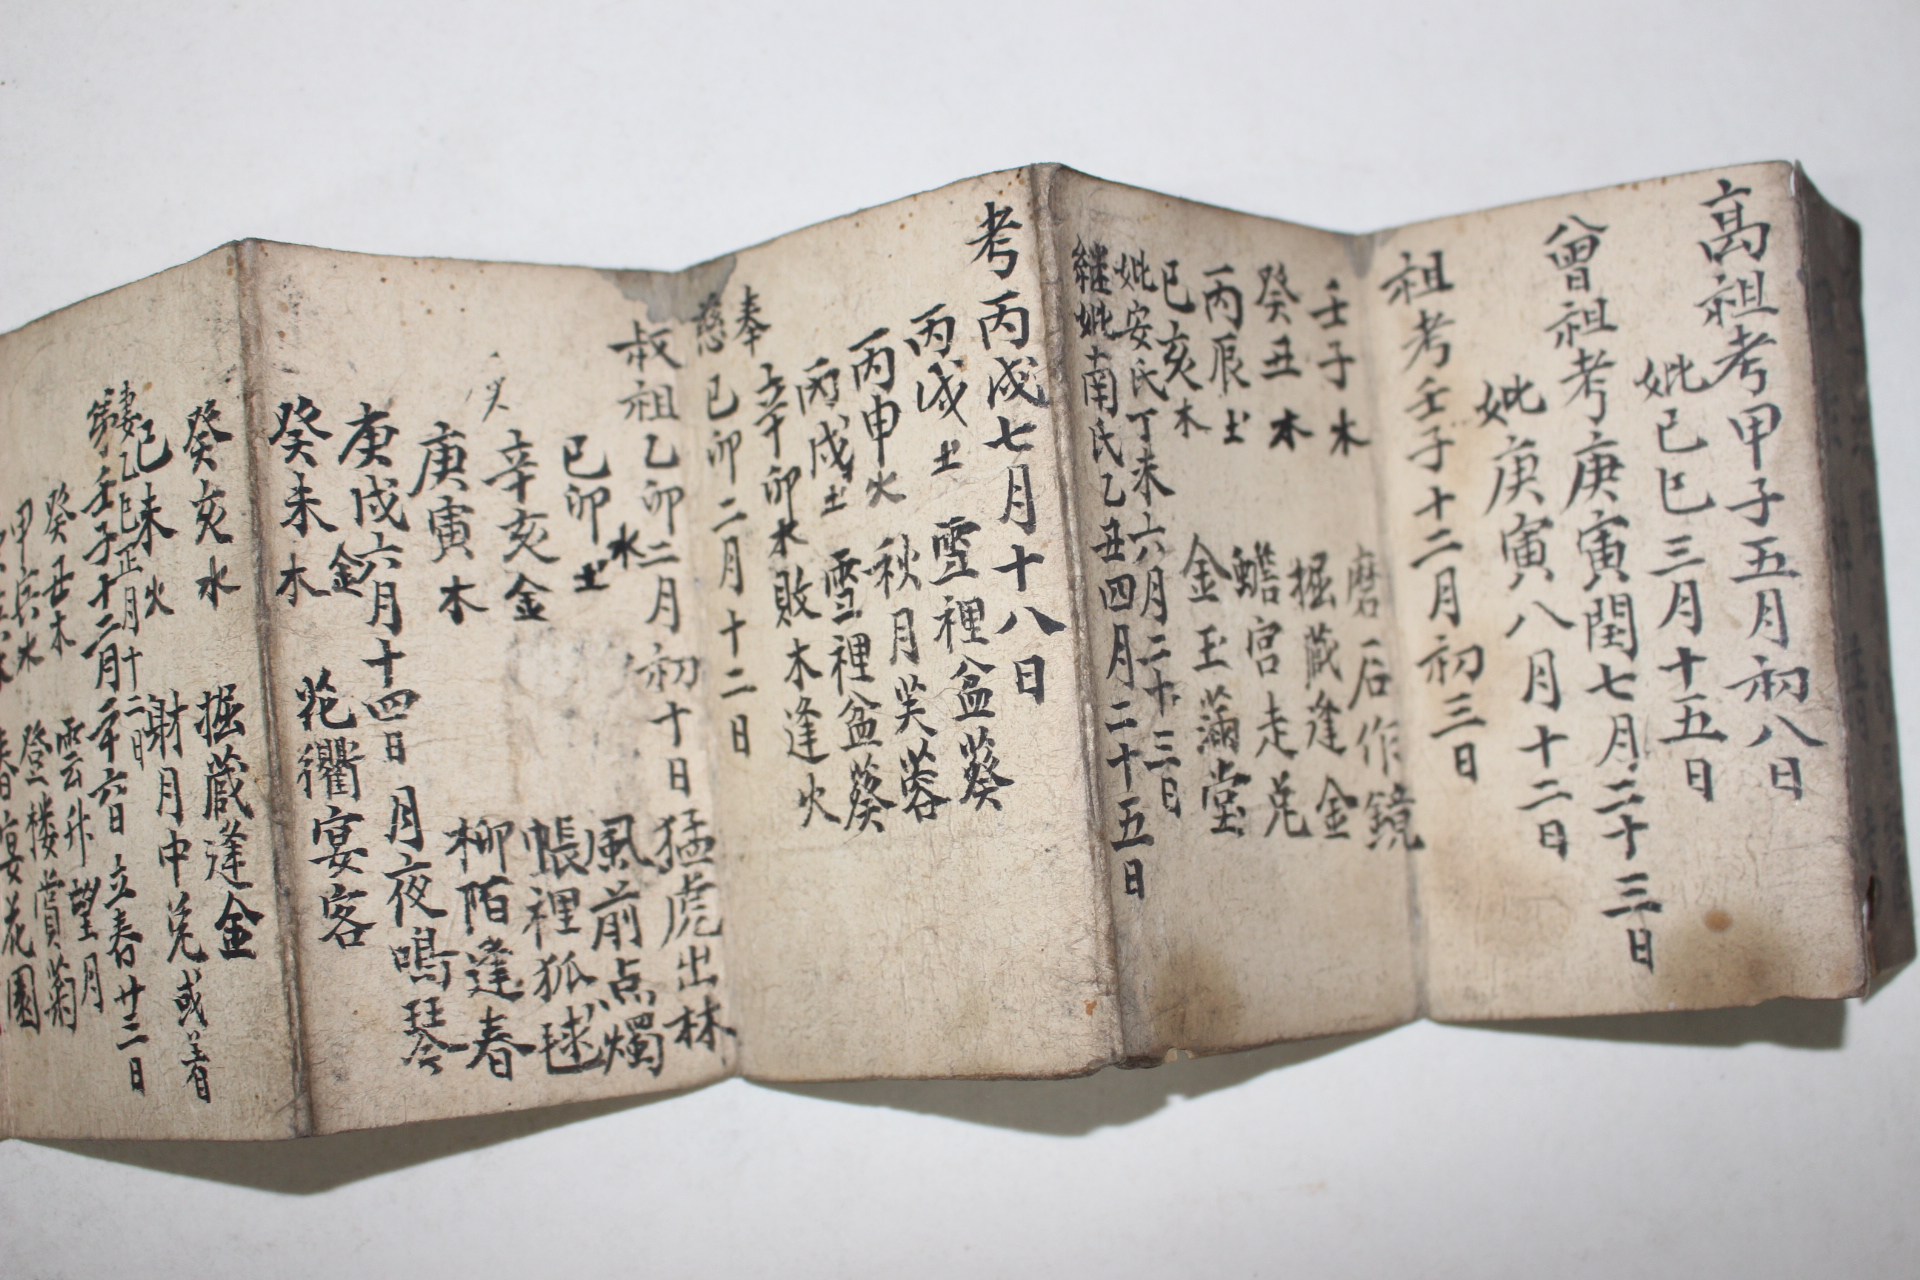 高祖考甲子五月初八日
妣己巳三月十五日
曾祖考庚寅閏七月二十三日
妣庚寅八月十二日
祖考壬子十二月初三日
壬子木 磨石作鏡
癸丑木 掘藏逢金
丙辰土 蟾宮走兎
己亥木 金玉滿堂
妣安氏丁未六月二十三日
継妣南氏乙丑四月二十五日
考丙戌七月十八日
丙戌土 雪裡盆葵
丙申火 秋月芙蓉
丙戌土 雪裡盆葵
辛卯木 敗木逢火
奉慈己卯二月十二日
叔祖乙卯二月初十日 猛虎出林
水 風前点燭
己卯土 帳裡狐狸
辛亥金 柳陌逢春
庚寅木 月夜鳴琴
庚戌六月十四日
金
癸未木 花衢宴客
癸亥水 掘藏逢金
己未火 射月中兎或着
妻乙巳正月十二日
弟壬子十二月二十六日 立春廿三日
癸丑木 雲外望月
水 登楼賞菊
春宴花園